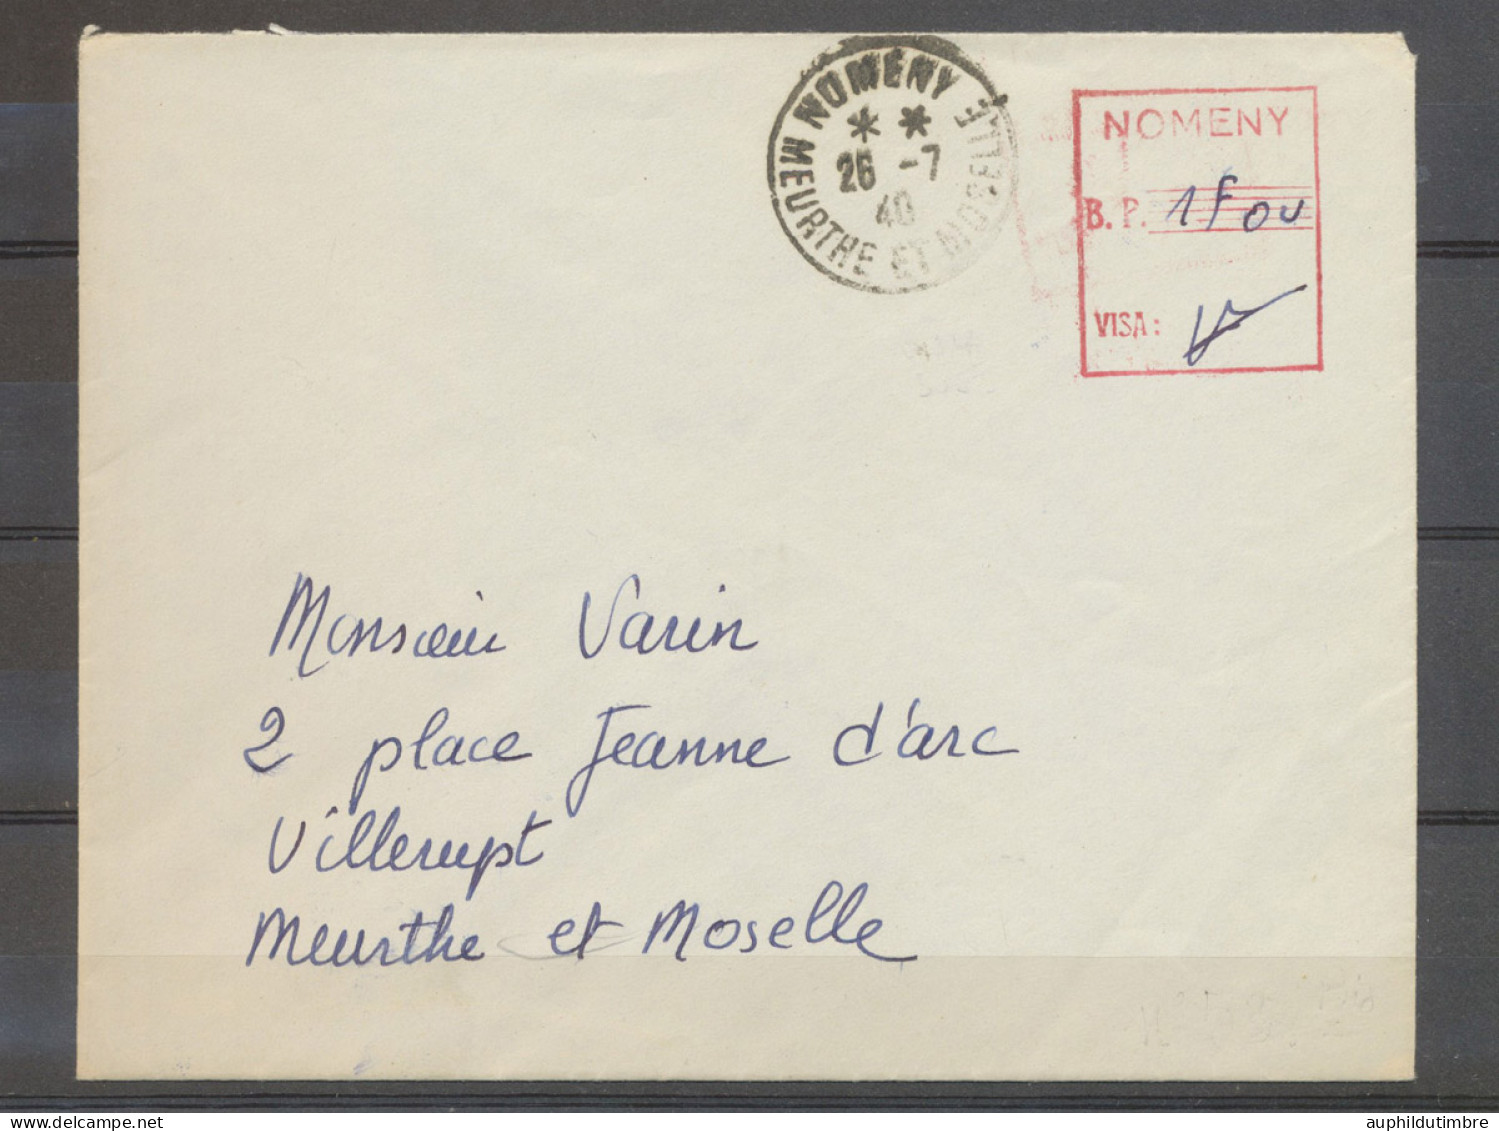 NOMENY
* *
26 -7
40
MEURTHE ET MOSELLE
NOMENY
B. P. 1F00
VISA:
Monsieur Varin
2 place Jeanne d'arc
Villerupt
Meurthe et Moselle
auphildutimbre